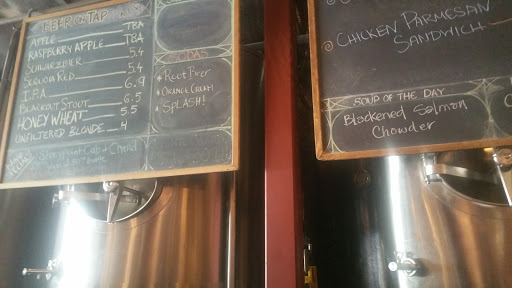 BEER ON TAP
APPLE TBA
RASPBERRY APPLE TBA
SCHWARZBIER 5.4
SEQUOIA RED 5.4
I.P.A. 6.9
BLACKOUT STOUT 6.5
HONEY WHEAT 5.5
UNFILTERED BLONDE 4
SODAS
Root Beer
ORANGE CREAM
SPLASH!
CHICKEN PARMESAN
SANDWICH
SOUP OF THE DAY
Blackened Salmon
Chowder